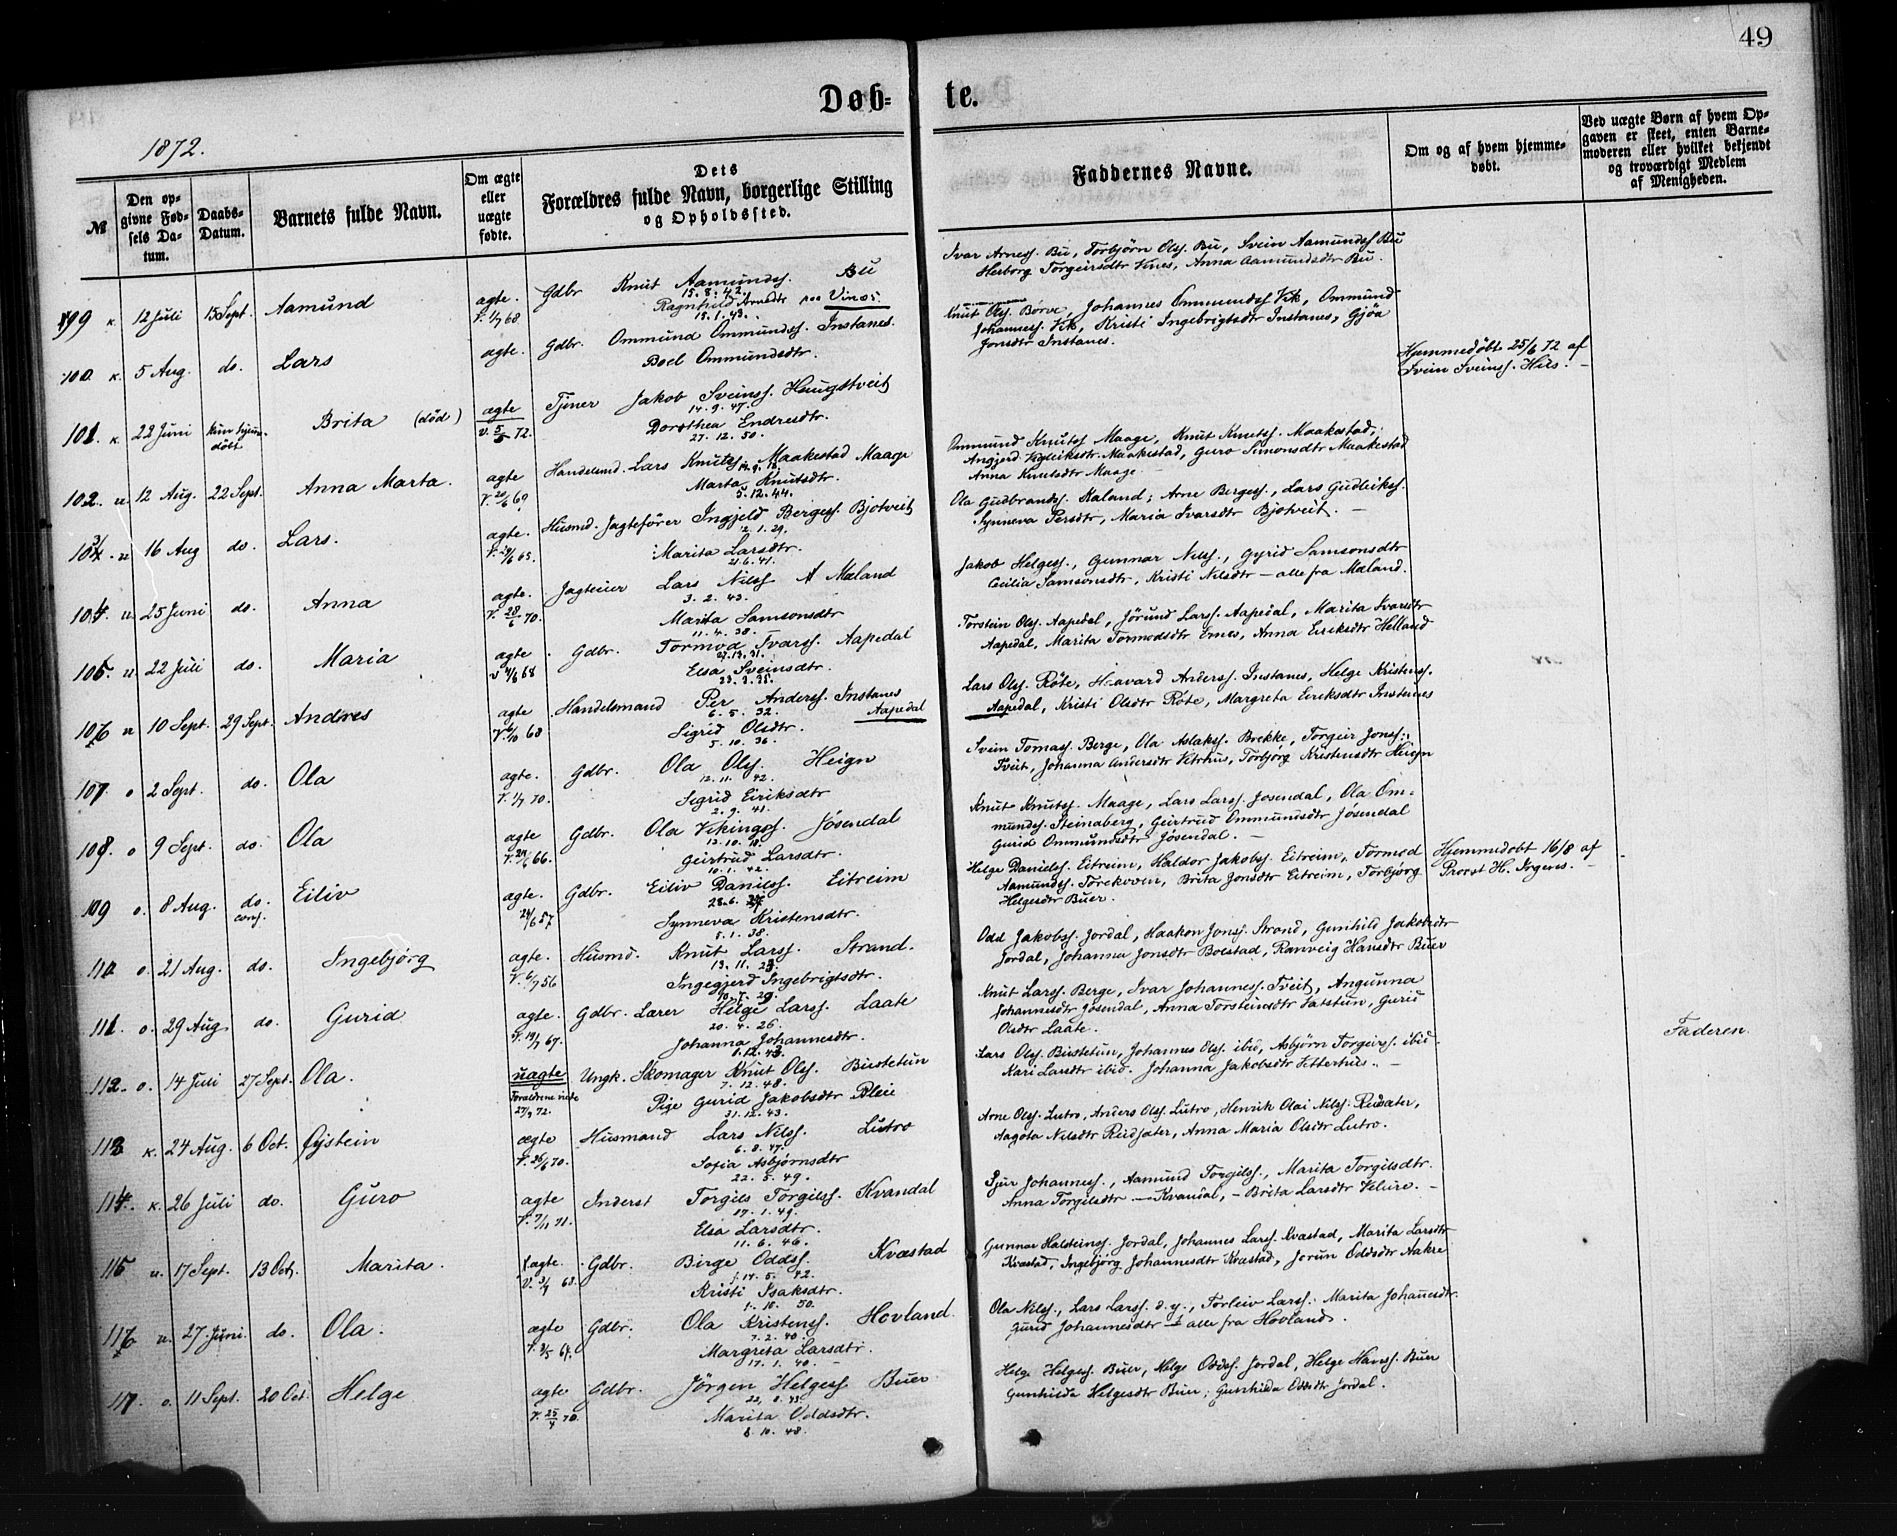 49
Døb-
te.
1872.
№
Den op-
givne Fød-
sels Da-
tum.
Daabs-
Datum.
Barnets fulde Navn.
Om ægte
eller
uægte
fødte.
Dets
Forældres fulde Navn, borgerlige Stilling
og Opholdssted.
Faddernes Navne.
Om og af hvem hjemme-
døbt.
Ved uægte Børn af hvem Op-
gaven er skeet, enten Barne-
moderen eller hvilket bekjendt
og troværdigt Medlem
af Menigheden.
99 k. 12 Juli 15 Sept. Aamund ægte. Gdbr Knut Aamundss. Bu
V. 1/7 68 15. 8. 42.
Ragnhild Arnedtr paa Vines.
18. 1. 43.
Ivar Arness. Bu, Torbjørn Olss. Bu, Svein Aamundss Bu
Herborg Torgeirsdtr Vines, Anna Aamundsdtr Bu.
100. k. 5 Aug. do. Lars ægte. Gdbr. Ommund Ommundss. Instanes.
Boel Ommundsdtr.
Knut Olss. Børve, Johannes Ommundss Vik, Ommund
Johanness. Vik, Kristi Ingebrigtsdtr Instanes, Gjøa
Jonsdtr Instanes.
101. k. 22 Juni kun hjem-
døbt Brita (død) ægte Tjener Jakob Sveinss. Haugstveit
14. 9. 47.
V. 5/5 72. Dorothea Endresdtr.
27. 12. 50.
Hjemmedøbt 25/6 72 af
Svein Sveinss. Hus. -
102. u. 12 Aug. 22 Sept. Anna Marta. ægte Handelsmd. Lars Knutss. Maakestad Maage
Marta Knutsdtr.
5. 12. 44.
Ommund Knutss Maage, Knut Knutss. Maakestad,
Angjerd Vigleiksdtr. Maakestad, Guro Simonsdtr Maakestad
Anna Knutsdtr Maage
103. u. 16 Aug do. Lars. ægte. Husmd. Jagtefører Ingjeld Bergess. Bjotveit
2. 1. 29.
Marita Larsdtr.
21. 6. 41.
Ola Gudbrandss. Kaland; Arne Bergess., Lars Gudleikss.
Synneva Persdtr, Maria Ivarsdtr Bjotveit. -
104. u. 25 Juni do. Anna ægte. Jagteeier Lars Nilss Mæland
3. 2. 43.
V. 28/6 70. Marita Samsonsdtr
11. 4. 38.
Jakob Helgess., Gunnar Nilss., Gyrid Samsonsdtr
Cecilia Samsonsdtr, Kristi Nilsdtr - alle fra Mæland.
105. u. 22 Juli do. Maria ægte Gdbr. Tormod Ivarss. Aapedal
Elsa Sveinsdtr.
23. 3. 35.
Torstein Olss. Aapedal, Jørund Larss. Aapedal, Marita Ivarsdtr
Aapedal, Marita Tormodsdtr Ernes, Anna Eiriksdtr Helland
106 u 10 Sept. 29 Sept. Andres ægte Handelsmand Per Anderss. Instanes
6. 5. 32. Aapedal
Sigrid Olsdtr.
5. 10. 36.
Lars Olss. Røte, Havard Anderss. Instanes, Helge Kristenss.
Aapedal, Kristi Olsdtr Røte, Margreta Eiriksdtr Instanes
107 o 2 Sept. do. Ola ægte. Gdbr. Ola Olss. Heign
12. 11. 42.
V. 1/7 70. Sigrid Eiriksdtr
2. 9. 41.
Svein Tomass. Berge, Ola Aslakss. Brekke, Torgeir Jonss.
Tveit, Johanna Andersdtr Vitrhus, Torbjørg Kristensdtr Heign
108. o 9 Sept. do. Ola ægte Gdbr. Ola Vikingss. Jøsendal
V. 24/6 66. Geirtrud Larsdtr.
10. 1. 42.
Knut Knutss. Maage, Lars Larss. Jøsendal, Ola Om-
mundss. Steinaberg, Geirtrud Ommundsdtr Jøsendal
Gurid Ommundsdtr Jøsendal. -
109 o. 8 Aug. do. conf. Eiliv ægte. Gdbr. Eiliv Danilss. Eitreim
24/6 57 Synneva Kristensdtr.
5. 1. 38.
Helge Danielss. Eitreim, Haldor Jakobss. Eitreim, Tormod
Aamundss. Tøreksven, Brita Jonsdtr Eitreim, Torbjørg
Helgesdtr Buer.
Hjemmedøbt 16/8 af
Provst H. -
110 o. 21 Aug. do. Ingebjørg ægte. Husmd. Knut Larss. Strand.
V. 6/7 56 Ingegjerd Ingebrigtsdtr.
Odd Jakobss. Jordal, Haakon Jonss. Strand, Gunhild Jakobsdtr
Jordal, Johanna Jonsdtr Bolstad, Ranveig Hansdtr Buer
111. o. 29 Aug do. Gurid ægte. Gdbr. Lærer Helge Larss. Laate
20. 4. 26.
V. 19/7 67. Johanna Johannesdtr.
1. 12. 43.
Knut Larss. Berge, Ivar Johanness. Tveit, Angunna
Johannesdtr Jøsendal, Anna Torsteinsdtr Tatstun, Gurid
Olsdtr Laate.
112. o. 14 Juli 27 Sept. Ola. uægte Ungk. Skomager Knut Olss. Bustetun
7. 12. 48.
27/9 72. Pige Gurid Jakobsdtr Bleie
31. 12. 43.
Lars Olss. Bustetun, Johannes Olss. ibid, Asbjørn Torgeirss. ibid.
Kari Larsdtr ibid. Johanna Jakobsdtr Fetterhus. -
Faderen.
113 k. 24 Aug. 6 Oct. Øystein ægte Husmand Lars Nilss. Lutro
6. 8. 47.
V. 26/6 70. Sofia Asbjørnsdtr
22. 5. 49.
Arne Olss. Lutro, Anders Olss. Lutro, Henrik Olai Nilss. Reisæter,
Aagota Nilsdtr Reidsæter, Anna Maria Olsdtr Lutro.
114. k. 26 Juli do. Guro ægte Inderst Torgils Torgilss. Kvandal
17. 1. 49.
V. 7/11 71. Elsa Larsdtr.
11. 6. 46.
Sjur Johanness., Aamund Torgilss., Marita Torgilsdtr.
Anna Torgilsdtr - Kvandal, - Brita Larsdtr Velure. -
115 u. 17 Sept. 13 Oct. Marita. ægte. Gdbr. Birge Oddss. Kvæstad
14. 5. 42.
Kristi Isaksdtr.
1. 10. 50.
Gunnar Halsteinss. Jordal, Johannes Larss. Kvæstad, Marita Larsdtr
Kvæstad, Ingebjørg Johannesdtr Kvæstad, Jorun Oddsdtr Aakre
116 u. 27. Juni. do. Ola. ægte Gdbr. Ola Kristenss. Hovland.
7. 2. 40
Margreta Larsdtr.
17. 1. 40. -
Ola Nilss., Lars Larss. d. y., Torleiv Larss. Marita Johannesdtr.
Gurid Johannesdtr - alle fra Hovland.
117. o. 11 Sept. 20 Oct. Helge ægte Gdbr. Jørgen Helgess Buer
V. 25/4 70. Marita Oddsdtr.
8. 10. 48.
Helge Helgess. Buer, Helge Oddss. Jordal, Helge Hanss. Buer
Gunhilda Helgesdtr Buer; Gunhilda Oddsdtr Jordal.